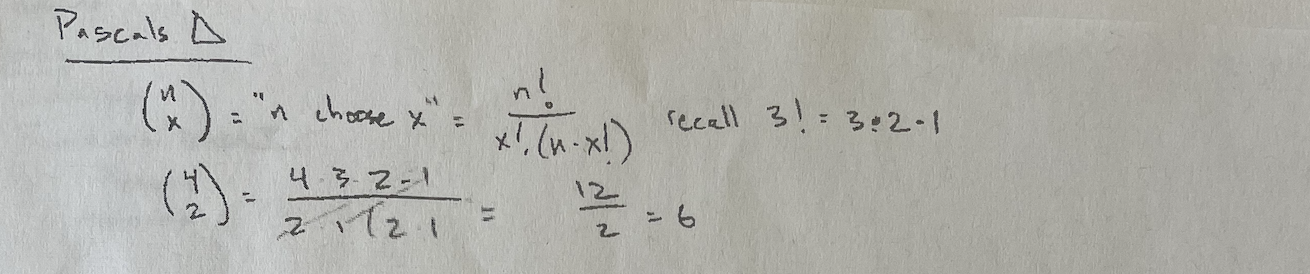 Pascals △
(n x) = "n choose x" = n! / x!·(n-x!) recall 3! = 3·2·1
(4 2) = 4·3·2·1 / 2·1(2·1 = 12/2 = 6